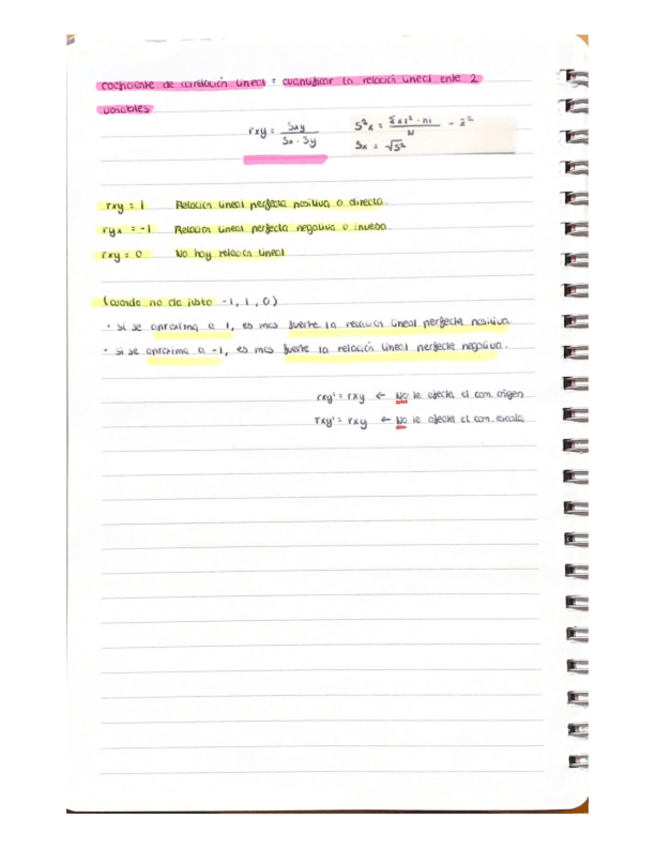 coeficiente de correlación lineal = cuantificar la relación lineal ente 2
variables
rxy = Sxy / Sx · Sy
S²x = Σxi² · ni / N - x̄²
Sx = √S²
rxy = 1 Relación lineal perfecta positiva o directa.
ryx = -1 Relación lineal perfecta negativa o inversa.
rxy = 0 No hay relación lineal
(cuando no da justo -1, 1, 0)
· si se aproxima a 1, es mas fuerte la relación lineal perfecta positiva.
· si se aproxima a -1, es mas fuerte la relación lineal perfecta negativa.
rxy' = rxy ← No le afecta el cam. origen
rxy' = rxy ← No le afecta el cam. escala